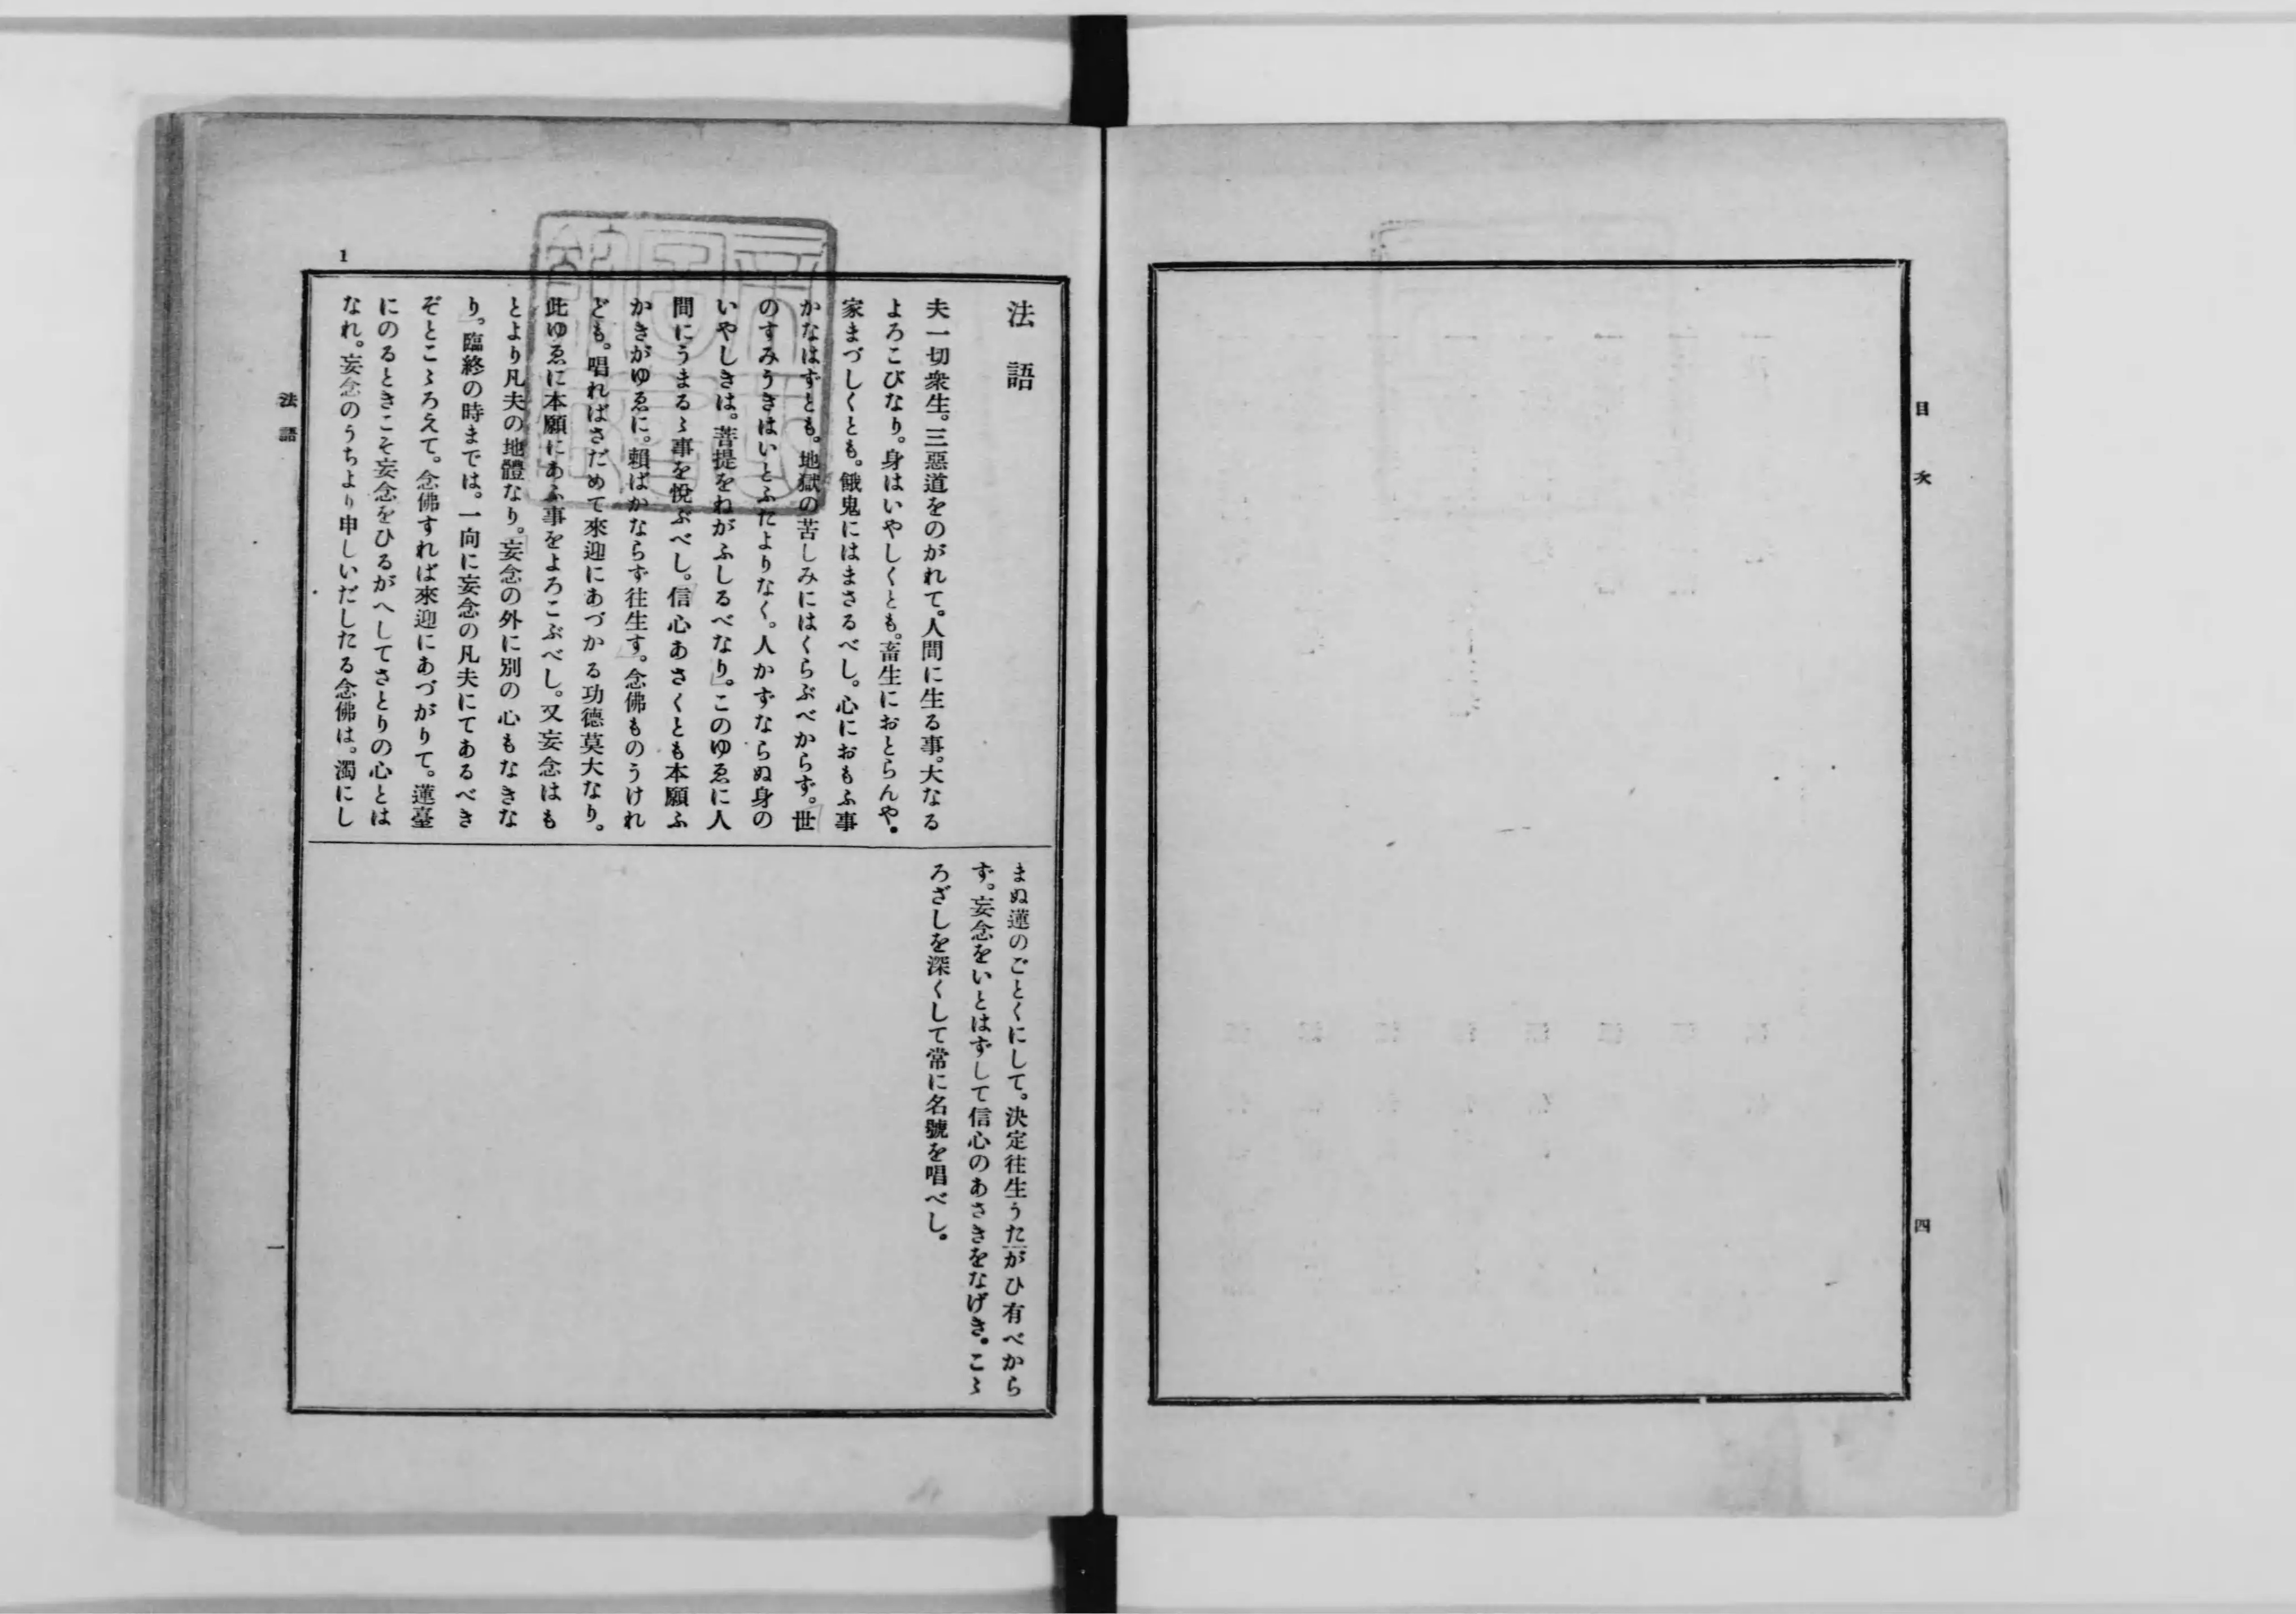 目次
四
1
法語
夫一切衆生。三惡道をのがれて。人間に生る事。大なる
よろこびなり。身はいやしくとも。畜生におとらんや。
家まづしくとも。餓鬼にはまさるべし。心におもふ事
かなはずとも。地獄の苦しみにはくらぶべからず。世
のすみうきはいとふたよりなく。人かずならぬ身の
いやしきは。菩提をねがふしるべなり。このゆゑに人
間にうまるゝ事を悅ぶべし。信心あさくとも本願ふ
かきがゆゑに。賴ばかならず往生す。念佛ものうけれ
ども。唱ればさだめて來迎にあづかる功德莫大なり。
此ゆゑに本願にあふ事をよろこぶべし。又妄念はも
とより凡夫の地體なり。妄念の外に別の心もなきな
り。臨終の時までは。一向に妄念の凡夫にてあるべき
ぞとこゝろえて。念佛すれば來迎にあづがりて。蓮臺
にのるときこそ妄念をひるがへしてさとりの心とは
なれ。妄念のうちより申しいだしたる念佛は。濁にし
まぬ蓮のごとくにして。決定往生うたがひ有べから
ず。妄念をいとはずして信心のあさきをなげき。こゝ
ろざしを深くして常に名號を唱べし。
法語
一